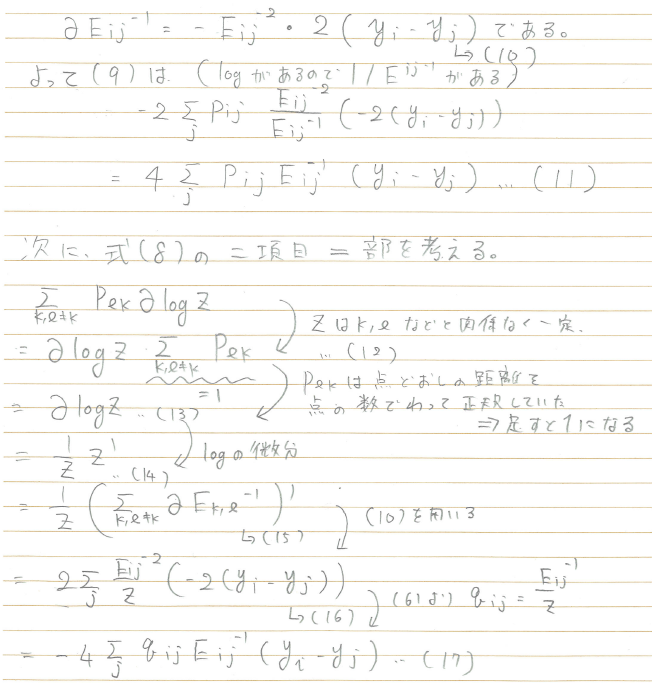 ∂Eij⁻¹ = -Eij⁻²・2(yi - yj) である。
↳(10)
よって(9)は (logがあるので1/E^ij⁻¹がある)
-2 Σj Pij Eij⁻²/Eij⁻¹ (-2(yi - yj))
= 4 Σj Pij Eij⁻¹ (yi - yj) … (11)
次に、式(8)の二項目 = 部を考える。
Σk,ℓ≠k Pℓk ∂log Z
Zはk,ℓなどと関係なく一定.
= ∂log Z・Σk,ℓ≠k Pℓk
… (12)
=1
Pℓkは点どおしの距離を
= ∂logZ …(13)
点の数でわって正規していた
⇒足すと1になる
= 1/Z Z' …(14)
logの微分
= 1/Z (Σk,ℓ≠k ∂Ek,ℓ⁻¹)'
↳(15)
(10)を用いる
= 2Σj Eij⁻²/Z (-2(yi - yj))
↳(16)
(6)より qij = Eij⁻¹/Z
= -4 Σj qij Eij⁻¹ (yi - yj) … (17)